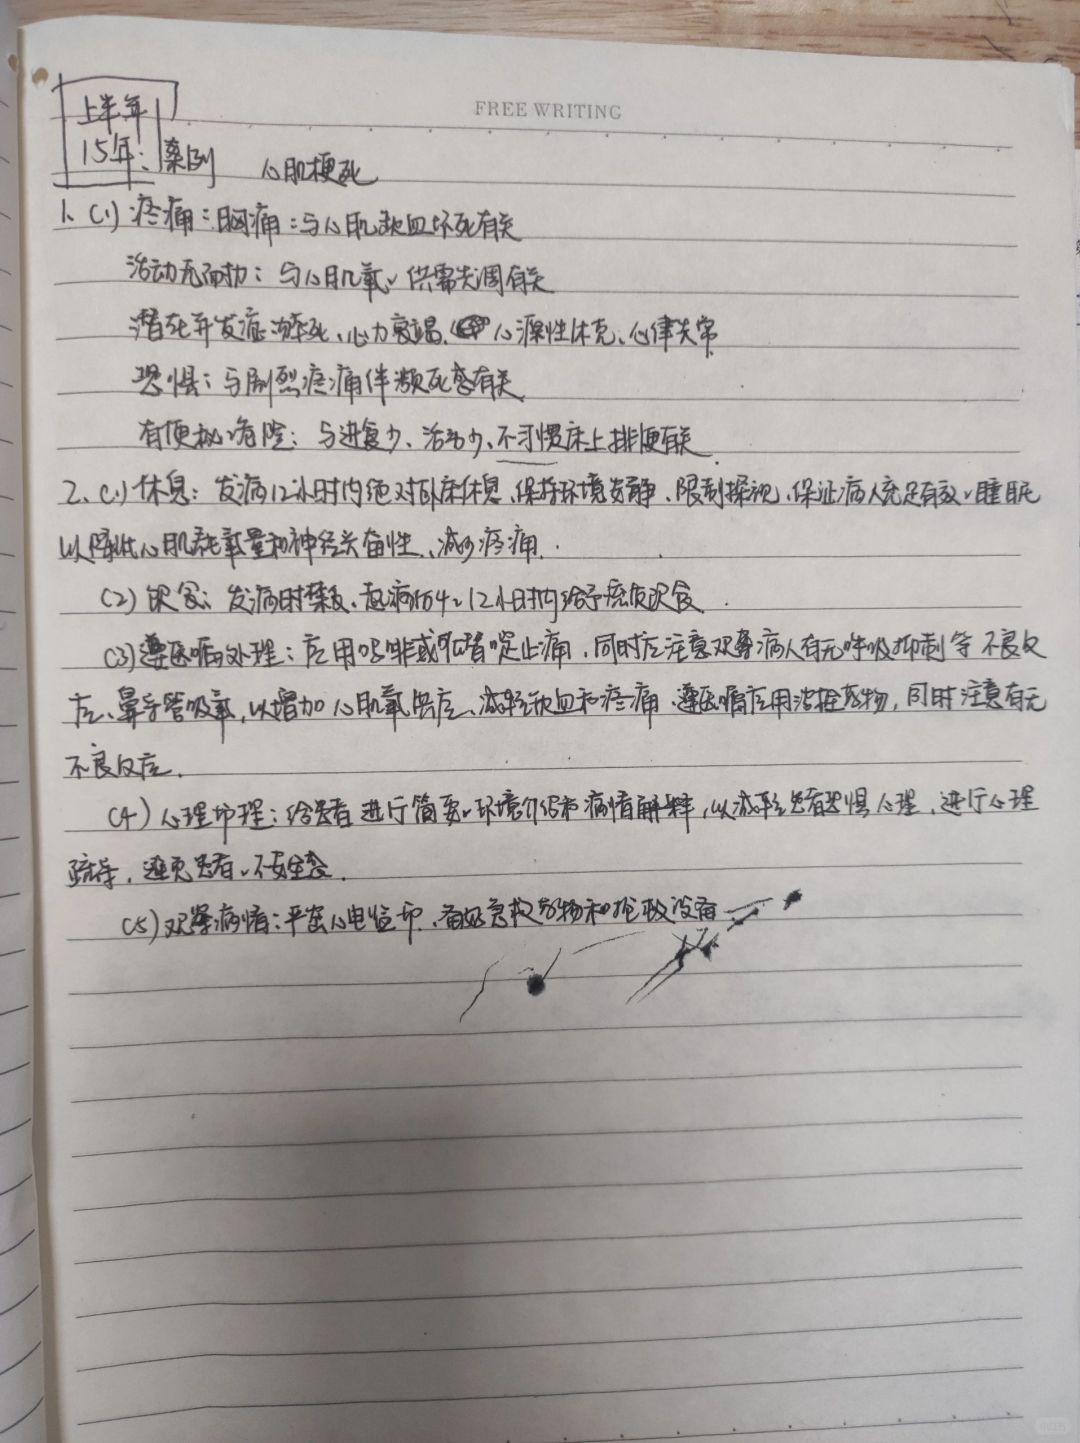 FREE WRITING
上半年
15年: 案例 心肌梗死
1、(1) 疼痛:胸痛:与心肌缺血坏死有关
活动无耐力:与心肌氧の供需失调有关
潜在并发症:猝死、心力衰竭、心源性休克、心律失常
恐惧:与剧烈疼痛伴濒死感有关
有便秘の危险:与进食少、活动少、不习惯床上排便有关
2、(1) 休息:发病12小时内绝对卧床休息、保持环境安静、限制探视、保证病人充足有效の睡眠
以降低心肌耗氧量和神经兴奋性、减少疼痛.
(2) 饮食:发病时禁食、起病后4~12小时内给予流质饮食
(3) 遵医嘱处理:应用吗啡或哌替啶止痛,同时应注意观察病人有无呼吸抑制等不良反
应、鼻导管吸氧,以增加心肌氧供应、减轻缺血和疼痛、遵医嘱应用溶栓药物,同时注意有无
不良反应.
(4) 心理护理:给患者进行简要の环境介绍和病情解释,以减轻患者恐惧心理,进行心理
疏导,避免患者の不安全感.
(5) 观察病情:严密心电监护、备好急救药物和抢救设备